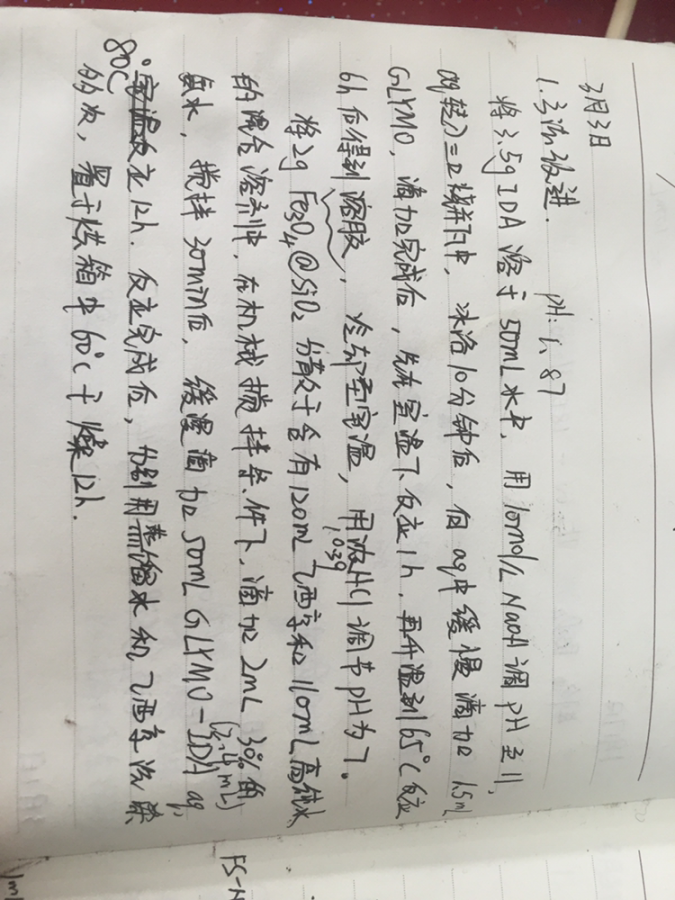 3月3日
1.3汤改进. pH: 1.87
将3.5g IDA 溶于50mL水中, 用10mol/L NaOH调pH至11,
aq转入三口烧瓶中, 冰浴10分钟后, 向aq中缓慢滴加1.5mL
GLYMO, 滴加完成后, 先在室温下反应1h, 再升温到65℃反应
6h后得到溶胶, 冷却至室温, 用浓HCl调节pH为7.
1.039
将2g Fe3O4@SiO2 分散于含有120mL乙醇和110mL高纯水
的混合溶剂中, 在机械搅拌条件下, 滴加2mL 30%的
(2.4mL)
氨水, 搅拌30min后, 缓慢滴加50mL GLYMO-IDA aq,
80℃
室温反应12h. 反应完成后, 分别用蒸馏水和乙醇洗涤
多次, 置于烘箱中60℃干燥12h.